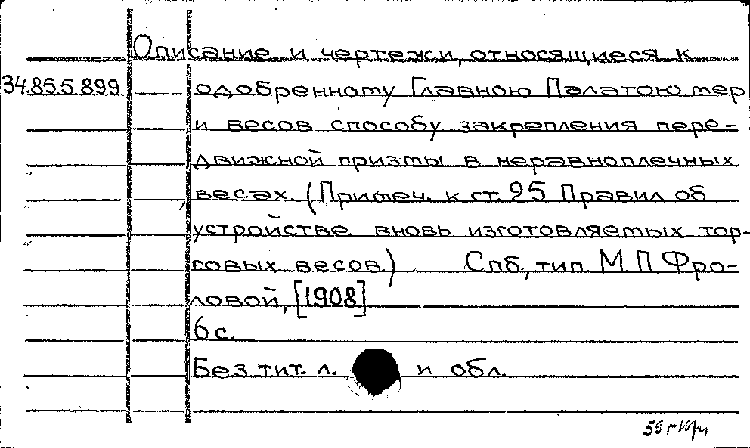 Описание и чертежи, относящиеся к
34.85.5.899 одобренному Главною Палатою мер
и весов способу закрепления пере-
движной призмы в неравноплечных
весах. (Примеч. к ст. 25 Правил об
устройстве вновь изготовляемых тор-
говых весов.) Спб, тип М П Фро-
ловой, [1908]
6 с.
Без тит. л. и обл.